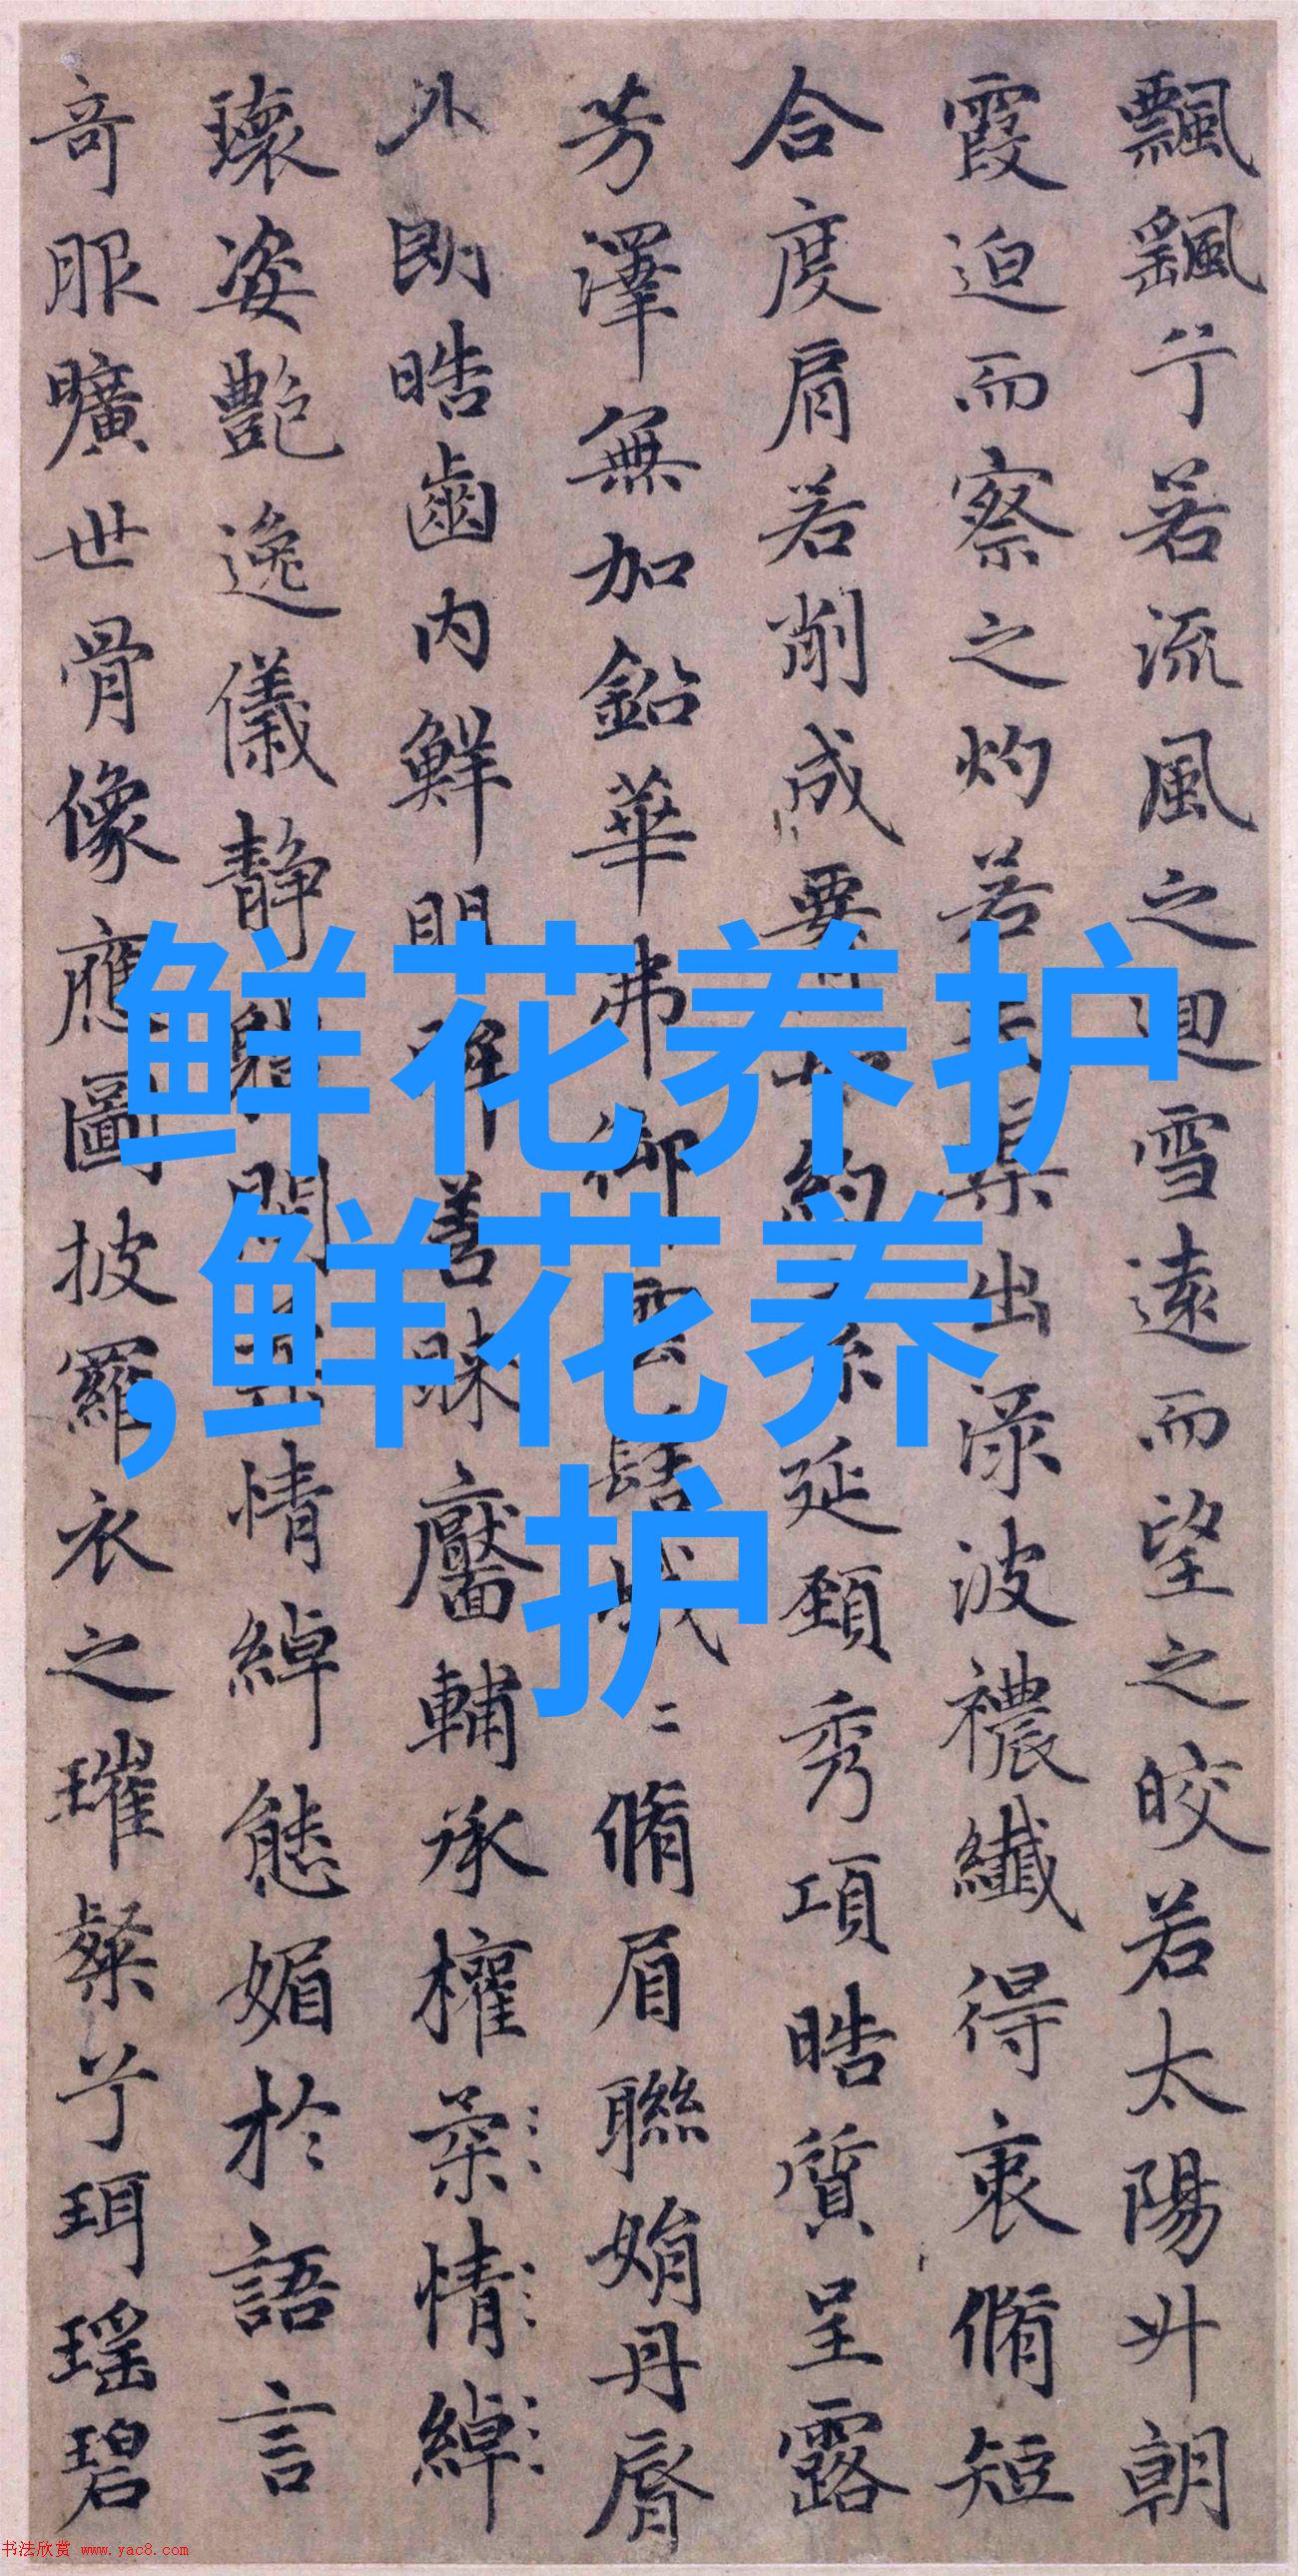 飄飖兮若流風之迴雪遠而望之皎若太陽升朝
霞迫而察之灼若渠出淥波襛纖得衷脩短
合度肩若削成要約延頸秀項晧質呈露
芳澤無加鉛華弗御雲髻峨二脩眉聯娟丹脣
外朗晧齒内鮮明眸善睞靨輔承權柔情綽
瓌姿艶逸儀静躰閑情綽態媚於語言
奇服曠世骨像應圖披羅衣之璀粲兮珥瑶碧
鲜花养护
,鲜花养
护
书法欣赏 www.yac8.com